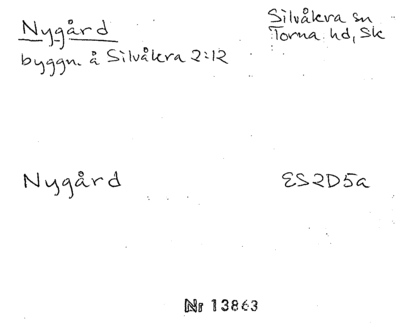 Nygård
Silvåkra sn
Torna hd, Sk
byggn. å Silvåkra 2:12
Nygård
ES2D5a
Nr 13863